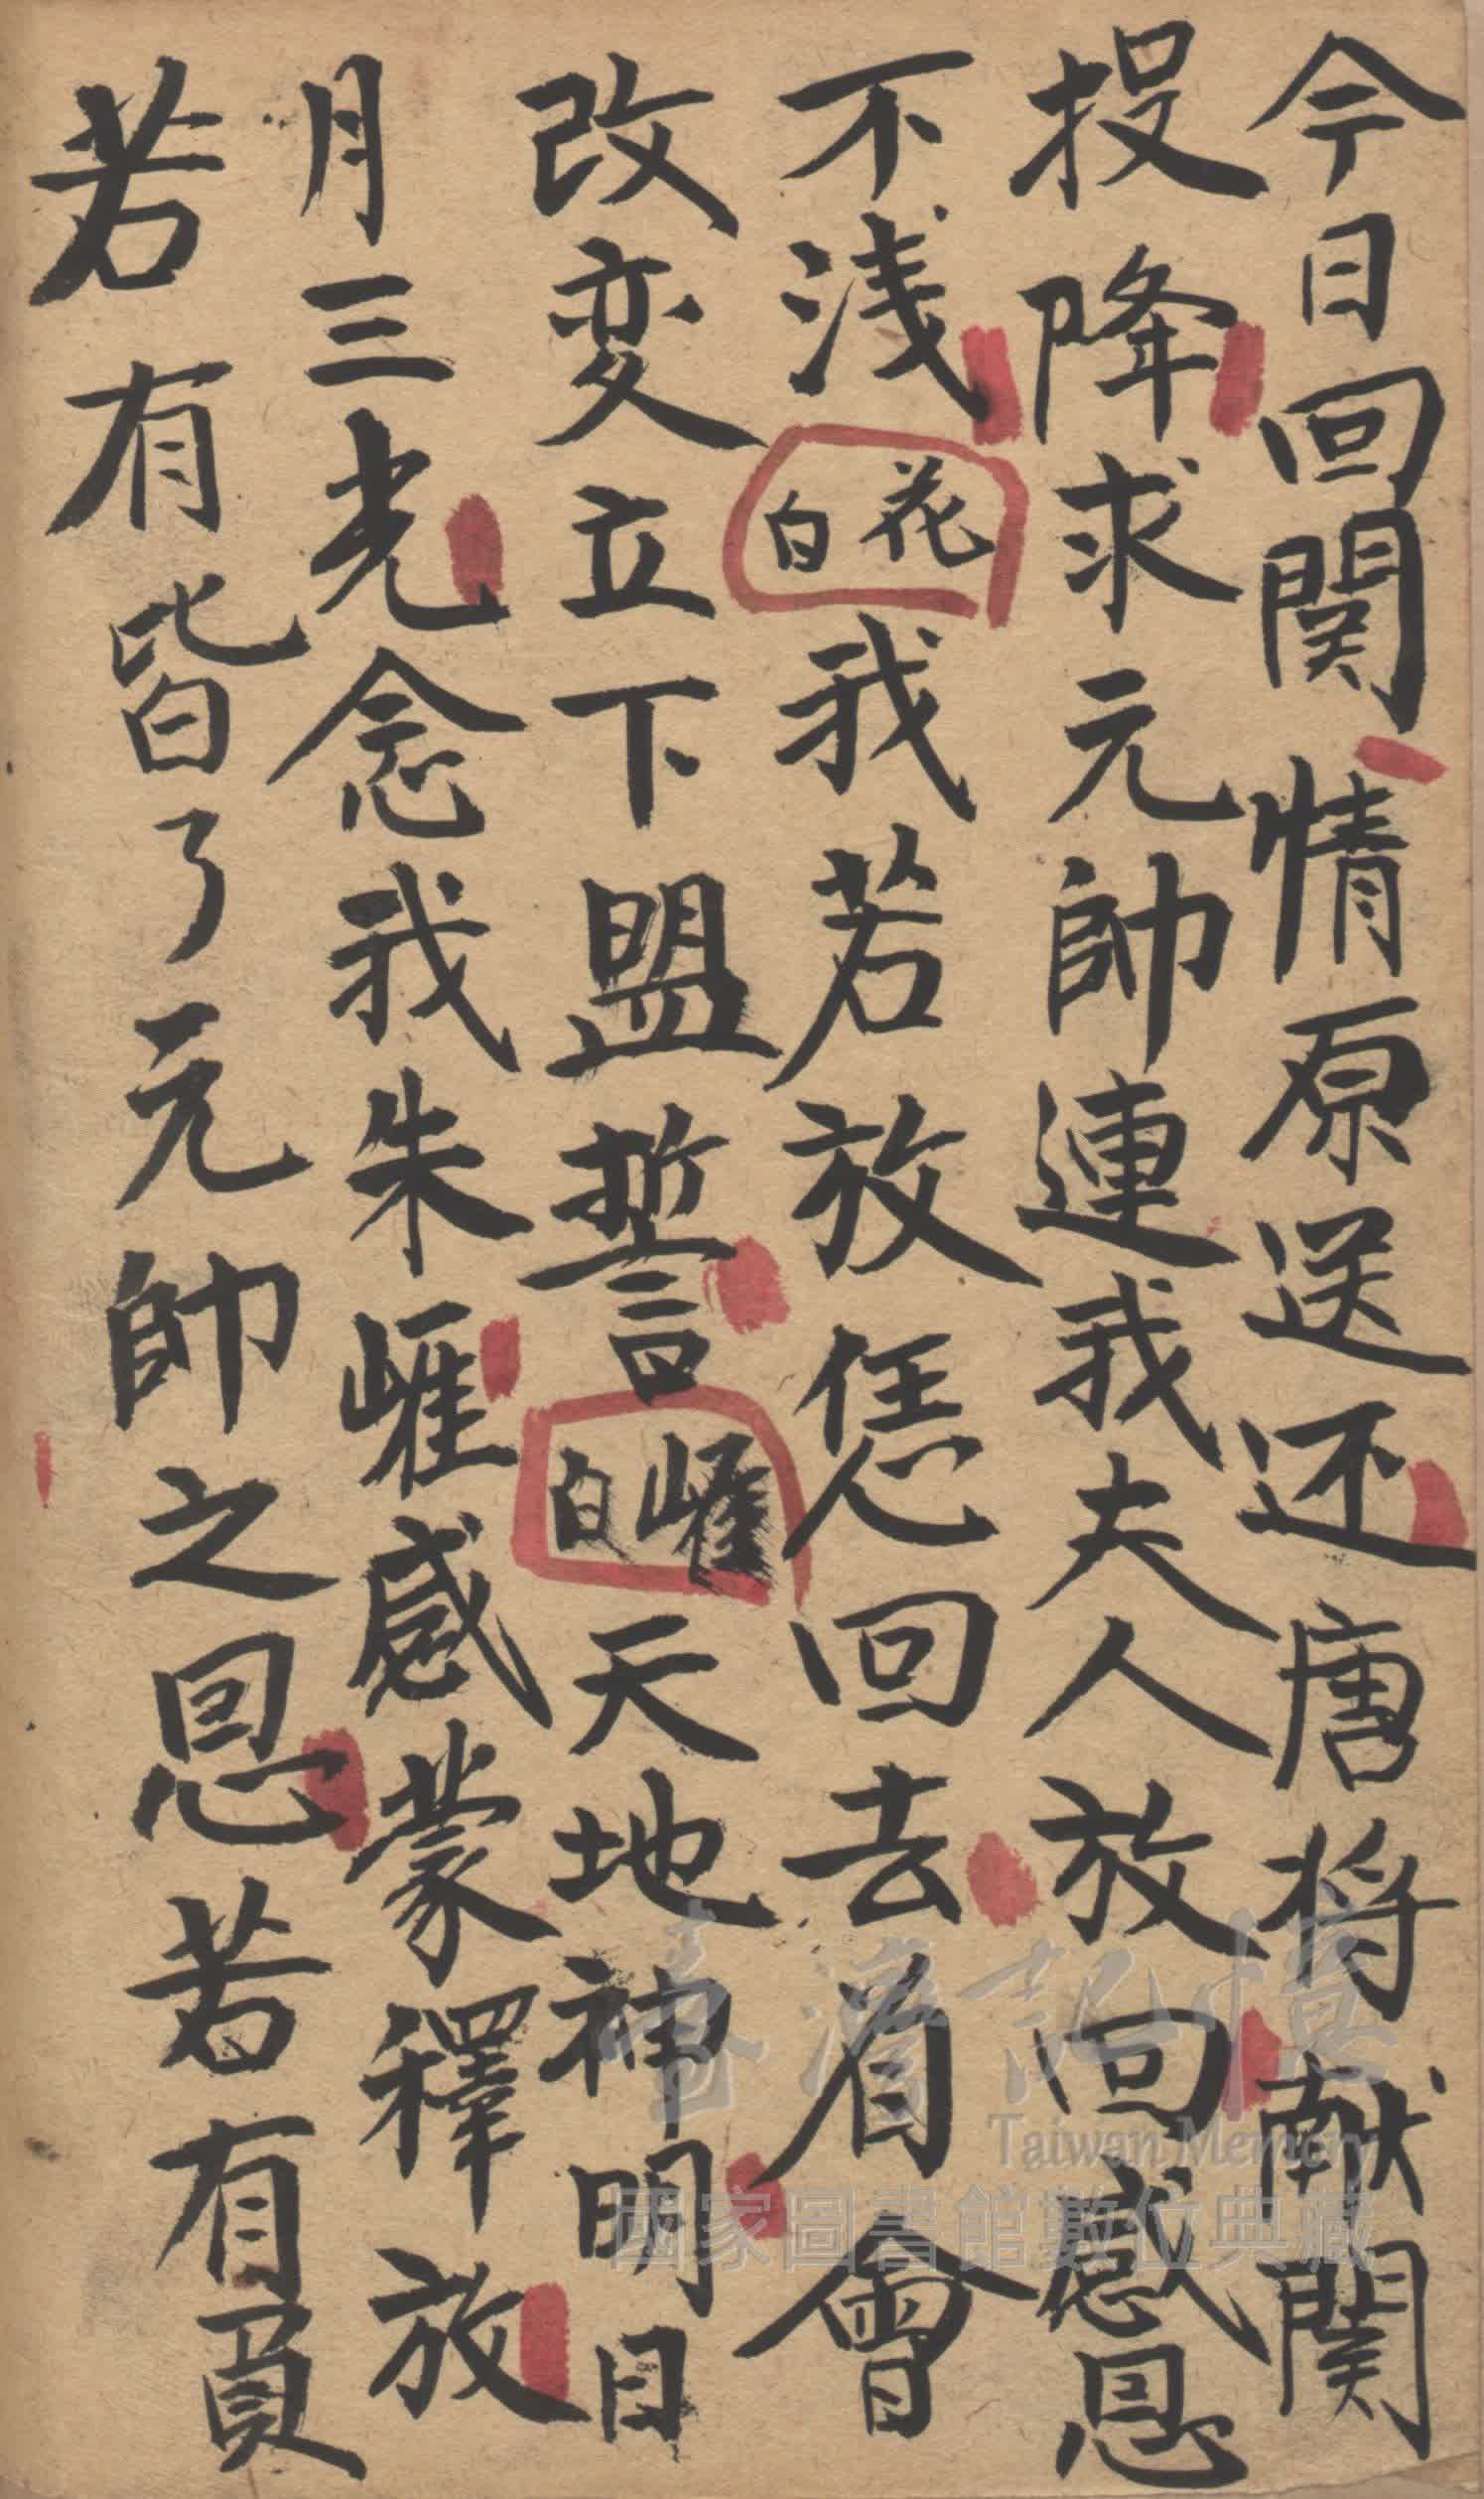 今日回関情原送还唐将献関
投降求元帥連我夫人放回感恩
不浅花白我若放恁回去看會
改変立下盟誓崕白天地神明日
月三光念我朱崕感蒙釋放
若有皆了元帥之恩若有負
台灣記憶
Taiwan Memory
國家圖書館數位典藏